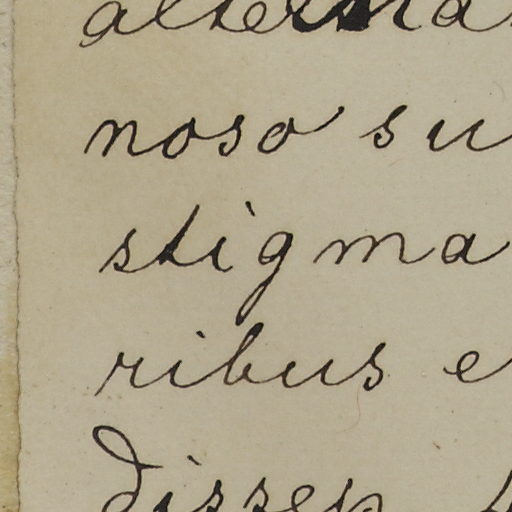 alterna
noso su
stigma
ribus e
Dissep